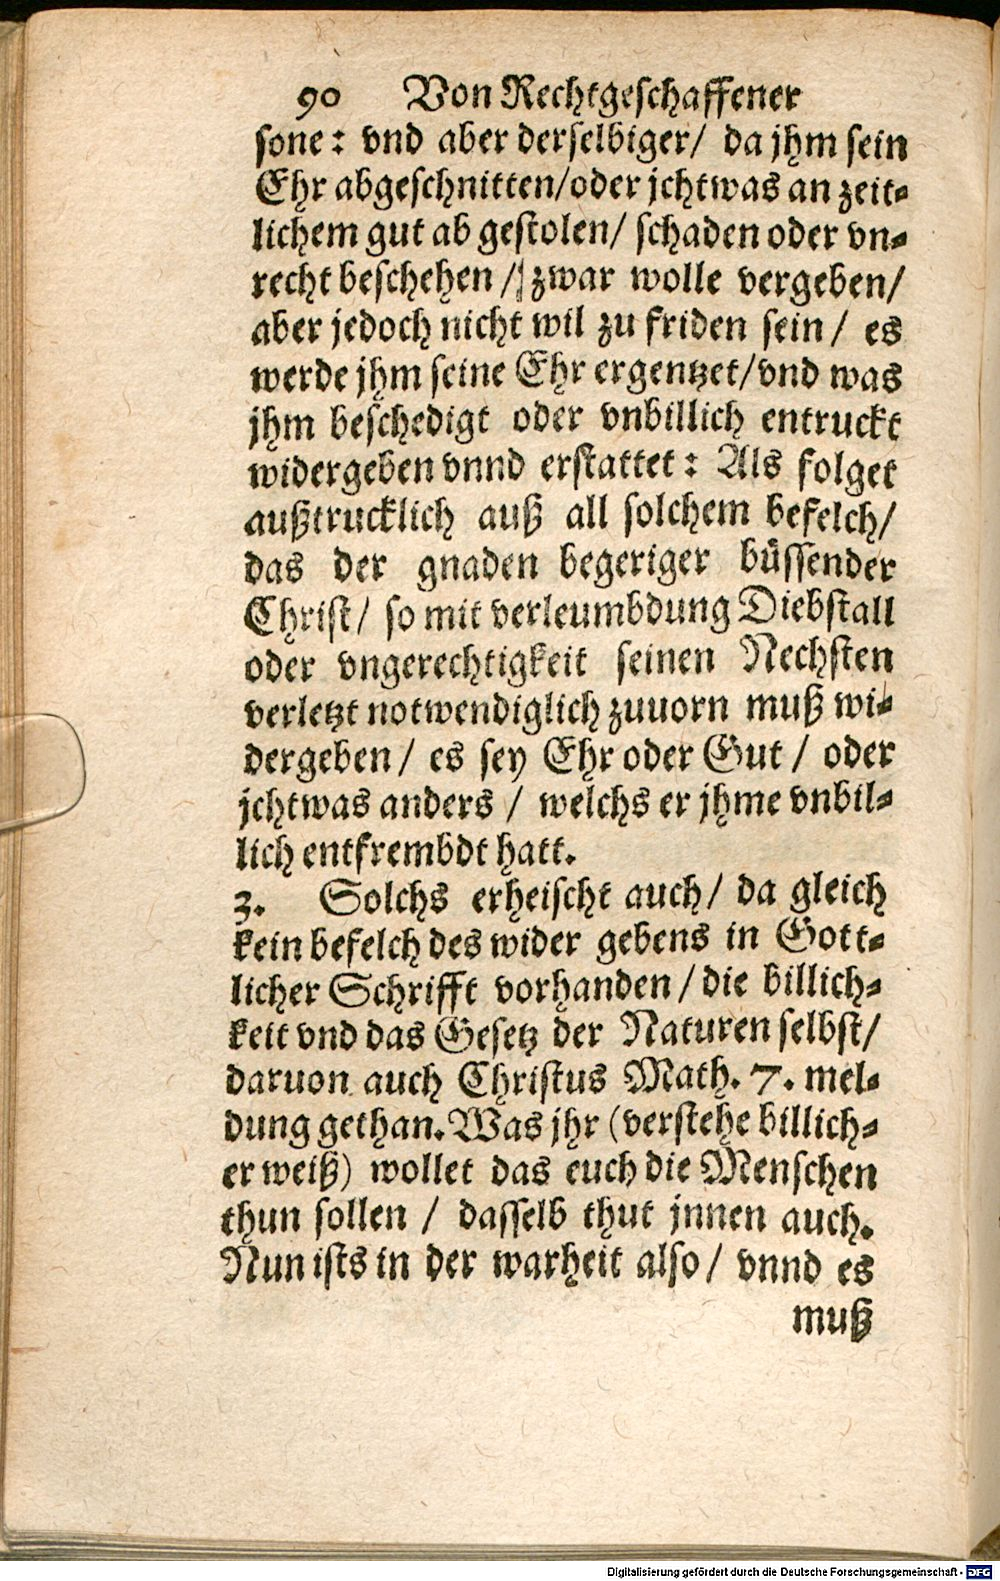 90 Von Rechtgeschaffener
sone: vnd aber derselbiger/ da jhm sein
Ehr abgeschnitten/oder jchtwas an zeit-
lichem gut ab gestolen/ schaden oder vn-
recht beschehen / zwar wolle vergeben/
aber jedoch nicht wil zu friden sein / es
werde jhm seine Ehr ergentzet/vnd was
jhm beschedigt oder vnbillich entruckt
widergeben vnnd erstattet: Als folget
außtrucklich auß all solchem befelch/
das der gnaden begeriger büssender
Christ/ so mit verleumbdung Diebstall
oder vngerechtigkeit seinen Nechsten
verletzt notwendiglich zuuorn muß wi-
dergeben / es sey Ehr oder Gut / oder
jchtwas anders / welchs er jhme vnbil-
lich entfrembdt hatt.
3. Solchs erheischt auch/ da gleich
kein befelch des wider gebens in Gott-
licher Schrifft vorhanden / die billich-
keit vnd das Gesetz der Naturen selbst/
daruon auch Christus Math. 7. mel-
dung gethan. Was jhr (verstehe billich-
er weiß) wollet das euch die Menschen
thun sollen / dasselb thut jnnen auch.
Nun ists in der warheit also / vnnd es
muß
Digitalisierung gefördert durch die Deutsche Forschungsgemeinschaft - DFG